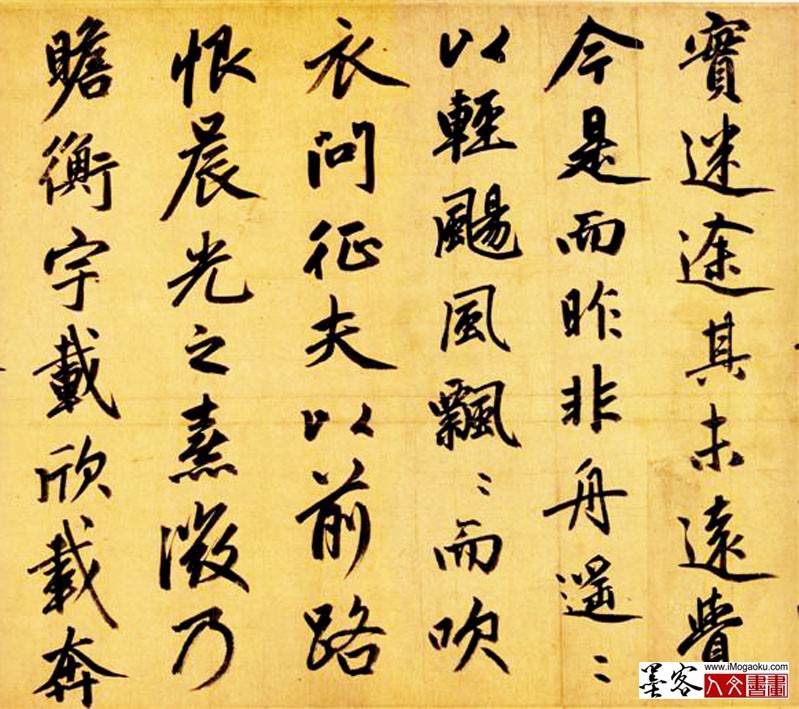 實迷途其未遠覺
今是而昨非舟遥〻
以輕颺風飄〻而吹
衣問征夫以前路
恨晨光之熹微乃
瞻衡宇載欣載奔
墨客
www.iMogaoku.com
人文書畫